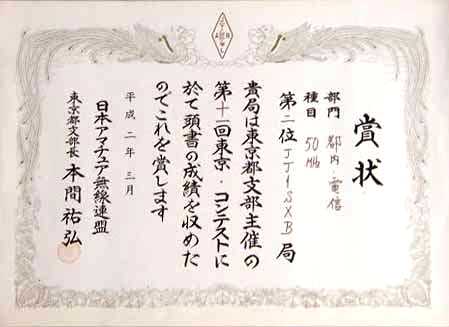 賞状
部門 都内・電信
種目 50MHz
第二位 JJ1SXB 局
貴局は東京都支部主催の
第十一回東京・コンテストに
於て頭書の成績を収めた
のでこれを賞します
平成二年三月
日本アマチュア無線連盟
東京都支部長 本間祐弘